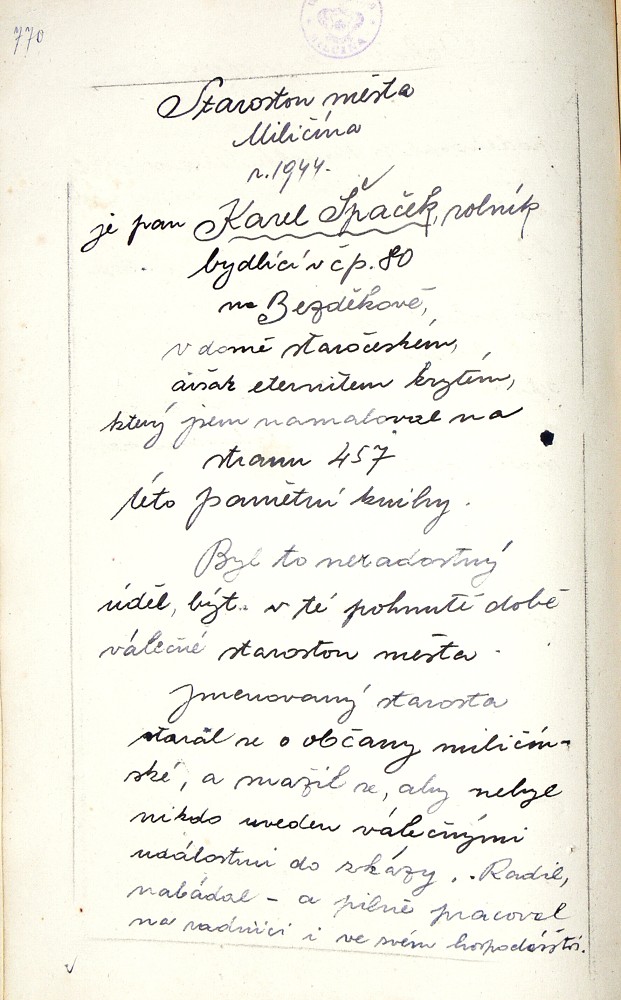 770
MILIČÍNA
Starostou města
Miličína
r. 1944.
je pan Karel Špaček, rolník
bydlící v čp. 80
na Bezděkově,
v domě staročeském,
avšak eternitem krytém,
který jsem namaloval na
stranu 457
této pamětní knihy.
Byl to neradostný
úděl, být v té pohnuté době
válečné starostou města.
Jmenovaný starosta
staral se o občany miličín-
ské, a snažil se, aby nebyl
nikdo uveden válečnými
událostmi do zkázy. Radil,
nabádal - a pilně pracoval
na radnici i ve svém hospodářství.